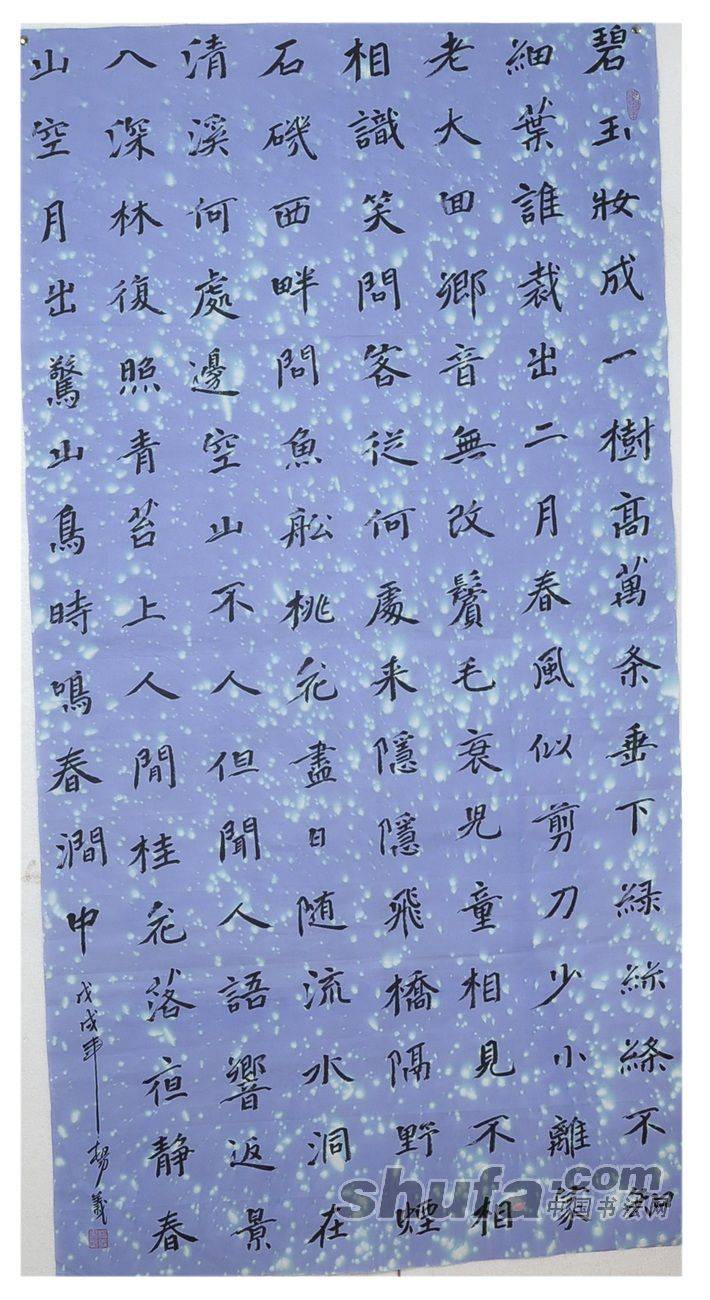 碧玉妝成一樹高萬条垂下綠絲絛不知
細葉誰裁出二月春風似剪刀少小離家
老大回鄉音無改鬢毛衰兒童相見不相
相識笑問客從何處来隱隱飛橋隔野煙
石磯西畔問魚船桃花盡日随流水洞在
清溪何處邊空山不人但聞人語響返景
入深林復照青苔上人閒桂花落夜静春
山空月出驚山鳥時鳴春澗中
戊戌年楊義
shufa.com
中国书法网